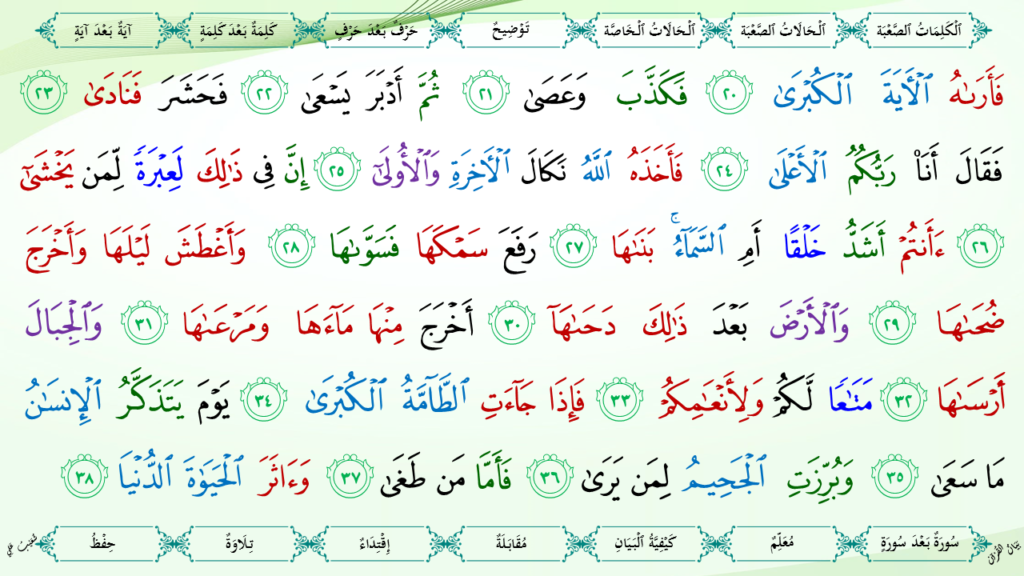 اَلْكَلِمَاتُ الصَّعْبَة اَلْحَالَاتُ الصَّعْبَة اَلْحَالَاتُ الْخَاصَّة تَوْضِيحٌ حَرْفٌ بَعْدَ حَرْفٍ كَلِمَةٌ بَعْدَ كَلِمَةٍ آيَةٌ بَعْدَ آيَةٍ
فَأَرَىٰهُ ٱلْأٓيَةَ ٱلْكُبْرَىٰ ٢٠ فَكَذَّبَ وَعَصَىٰ ٢١ ثُمَّ أَدْبَرَ يَسْعَىٰ ٢٢ فَحَشَرَ فَنَادَىٰ ٢٣
فَقَالَ أَنَا۠ رَبُّكُمُ ٱلْأَعْلَىٰ ٢٤ فَأَخَذَهُ ٱللَّهُ نَكَالَ ٱلْأٓخِرَةِ وَٱلْأُولَىٰٓ ٢٥ إِنَّ فِى ذَٰلِكَ لَعِبْرَةً لِّمَن يَخْشَىٰٓ
٢٦ ءَأَنتُمْ أَشَدُّ خَلْقًا أَمِ ٱلسَّمَآءُ ۚ بَنَىٰهَا ٢٧ رَفَعَ سَمْكَهَا فَسَوَّىٰهَا ٢٨ وَأَغْطَشَ لَيْلَهَا وَأَخْرَجَ
ضُحَىٰهَا ٢٩ وَٱلْأَرْضَ بَعْدَ ذَٰلِكَ دَحَىٰهَآ ٣٠ أَخْرَجَ مِنْهَا مَآءَهَا وَمَرْعَىٰهَا ٣١ وَٱلْجِبَالَ
أَرْسَىٰهَا ٣٢ مَتَـٰعًا لَّكُمْ وَلِأَنْعَـٰمِكُمْ ٣٣ فَإِذَا جَآءَتِ ٱلطَّآمَّةُ ٱلْكُبْرَىٰ ٣٤ يَوْمَ يَتَذَكَّرُ ٱلْإِنسَـٰنُ
مَا سَعَىٰ ٣٥ وَبُرِّزَتِ ٱلْجَحِيمُ لِمَن يَرَىٰ ٣٦ فَأَمَّا مَن طَغَىٰ ٣٧ وَءَاثَرَ ٱلْحَيَوٰةَ ٱلدُّنْيَا ٣٨
سُورَةٌ بَعْدَ سُورَةٍ مُعَلِّمٌ كَيْفِيَّةُ الْبَيَانِ مُقَابَلَةٌ إِقْتِدَاءٌ تِلَاوَةٌ حِفْظٌ